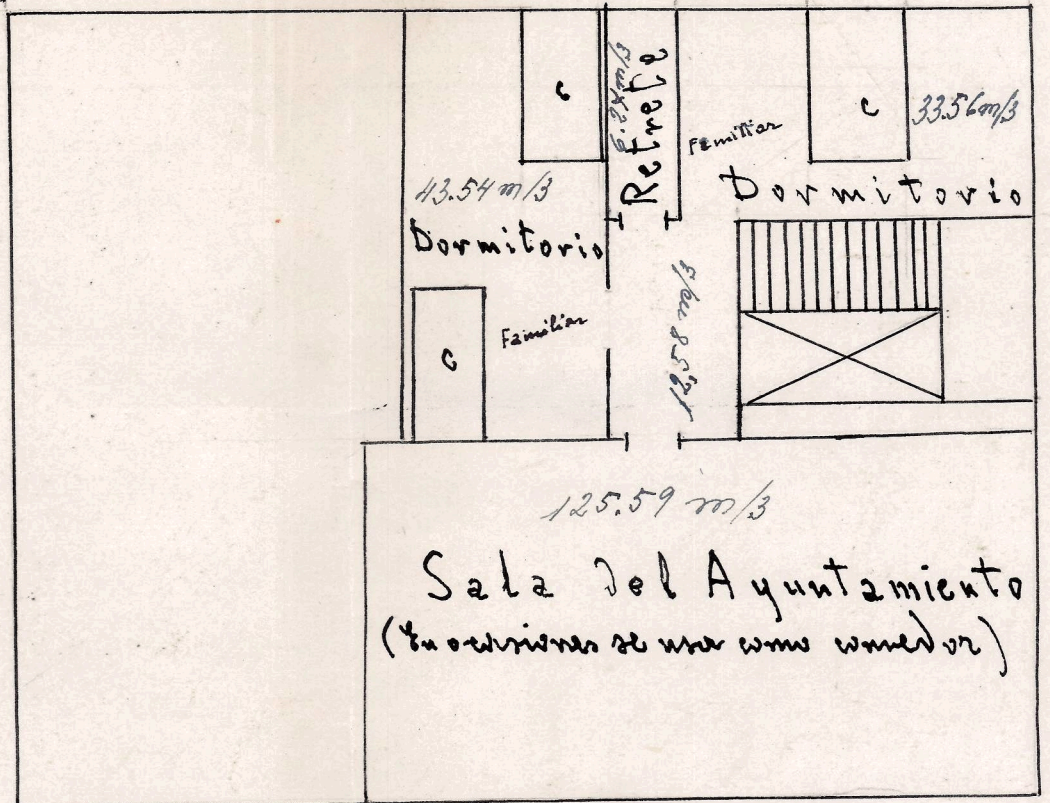 C
Retrete
Familiar
C
33.56 m/3
43.54 m/3
Dormitorio
Dormitorio
C
Familiar
125.59 m/3
Sala del Ayuntamiento
(En ocasiones se usa como comedor)